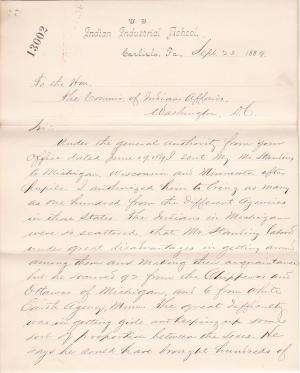 13002
U. S.
Indian Industrial School.
Carlisle, Pa. Sept. 23, 1889
To the Hon.
The Commr. of Indian Affairs,
Washington, D.C.
Sir:
Under the general authority from your
Office dated June 19, I sent Mr. Standing
to Michigan, Wisconsin and Minnesota after
pupils. I authorized them to bring as many
as one hundred from the different Agencies
in those States. The Indians in Michigan
were so scattered, that Mr. Standing labored
under great disadvantages in getting around
among them and making their acquaintance
but he secured 92 from the Chippewas and
Ottawas of Michigan, and 6 from White
Earth Agency, Minn. The great difficulty
was in getting girls and keeping up some
sort of proportion between the sexes. He
says he could have brought hundreds of